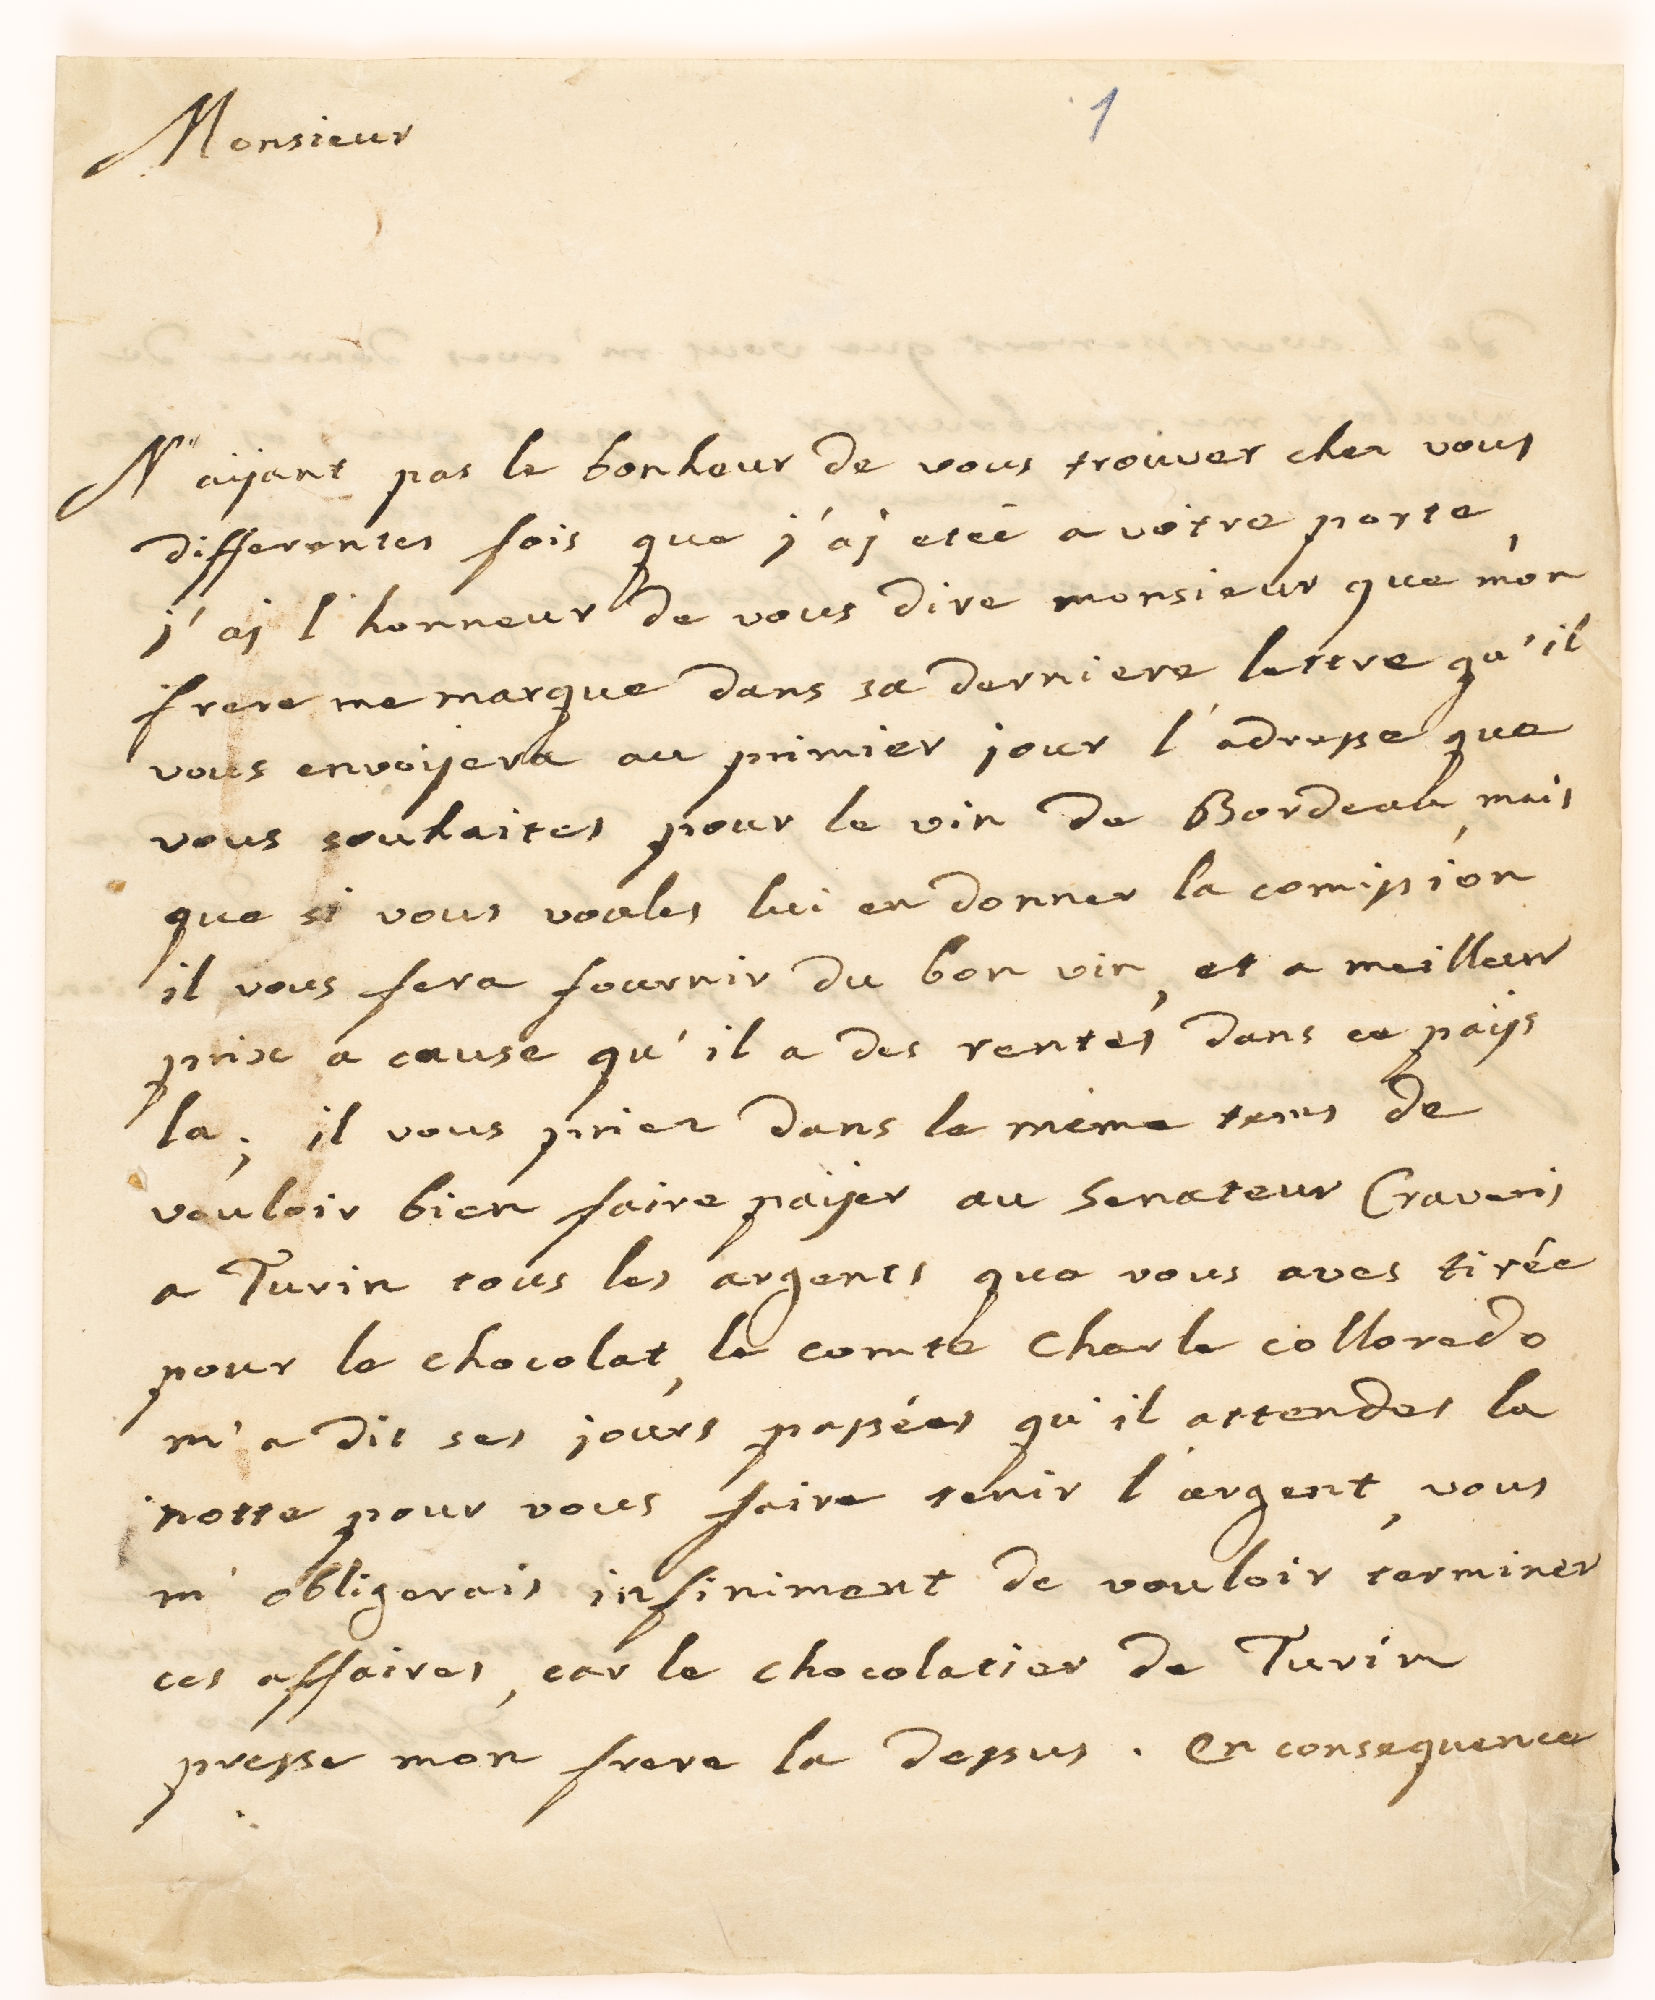 1
Monsieur
N'aijant pas le bonheur de vous trouver chez vous
differentes fois que j'aj etéé a vôtre porte,
j'aj l'honneur de vous dire monsieur que mon
frere me marque dans sa derniere lettre qu'il
vous envoijera au primier jour l'adresse que
vous souhaites pour le vin de Bordeau, mais
que si vous voules lui en donner la comission
il vous fera fournir du bon vin, et a meilleur
prix a cause qu'il a des rentes dans ce païjs
la; il vous priez dans le même tems de
vouloir bien faire païjer au Senateur Craveris
a Turin tous les argents que vous aves tirée
pour le chocolat, le comte Charle colloredo
m'a dit ses jours passées qu'il attendes la
notte pour vous faire tenir l'argent, vous
m'obligerais infiniment de vouloir terminer
ces affaires, car le chocolatier de Turin
presse mon frere la dessus. En consequence